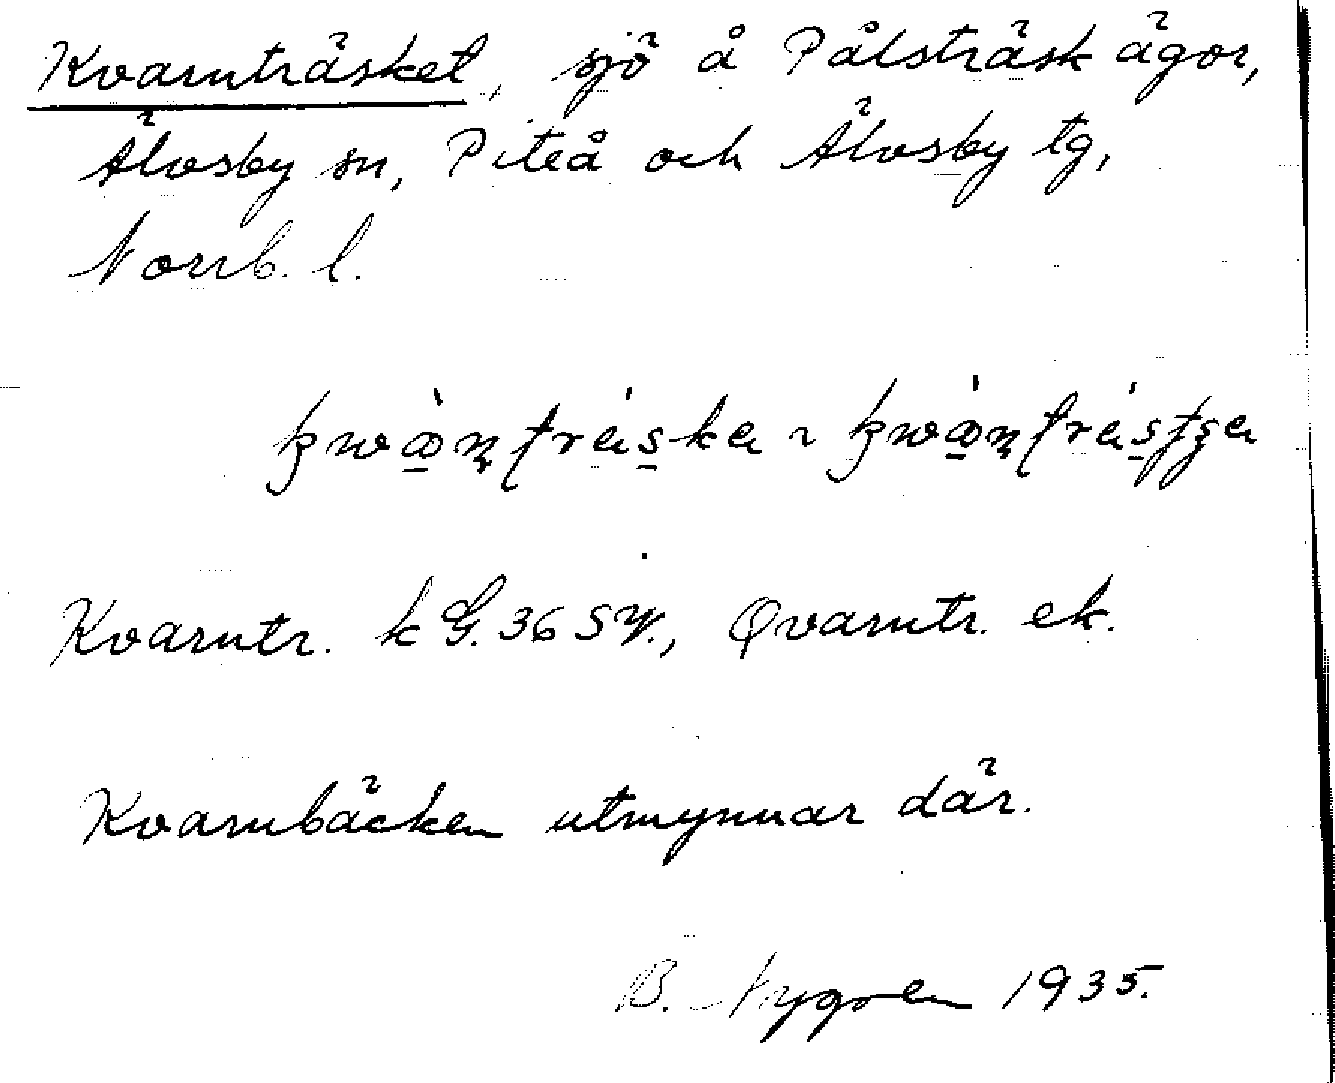 Kvarnträsket, sjö å Pålsträsk ägor,
Älvsby sn, Piteå och Älvsby tg,
Norrb. l.
Kvarntr. k G. 36 SV., Qvarntr. ek.
Kvarnbäcken utmynnar där.
B. Nygren 1935.